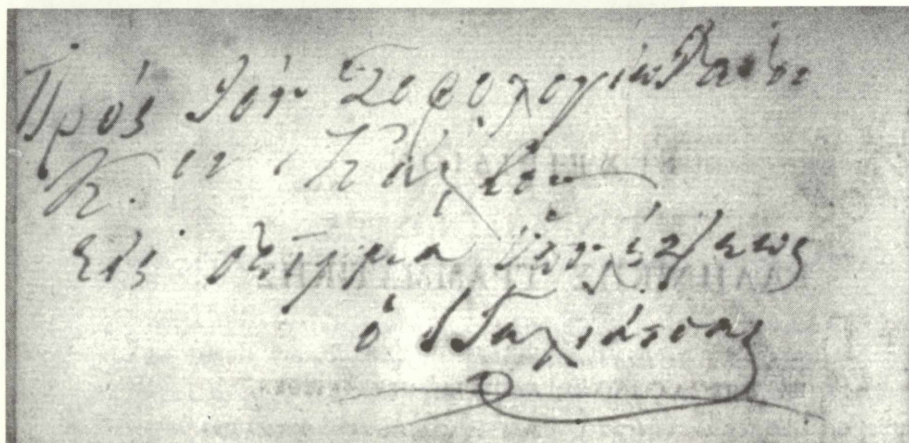 Πρὸς τὸν Σοφολογιώτατον
Κ. ον Κάλβον
Εἰς δεῖγμα ὑπολήψεως
ὁ Γαλιάτσας